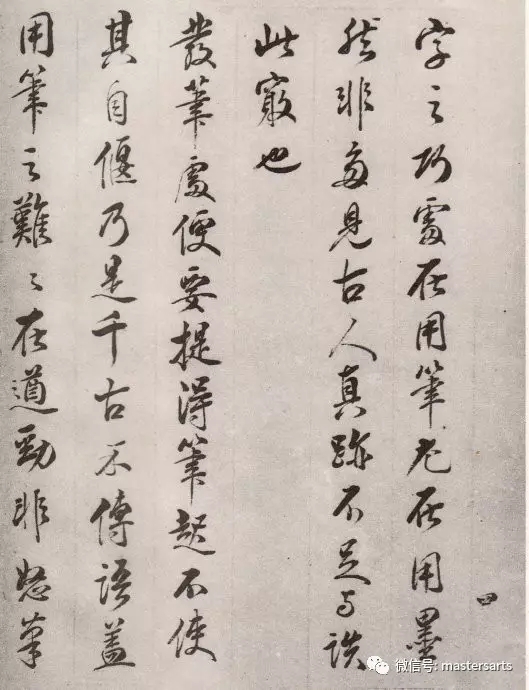 字之巧處在用筆尤在用墨
然非多見古人真跡不足与談
此竅也
發筆處便要提得筆起不使
其自偃乃是千古不傳語盖
用筆之難〻在遒勁非怒筆
四
微信号: mastersarts